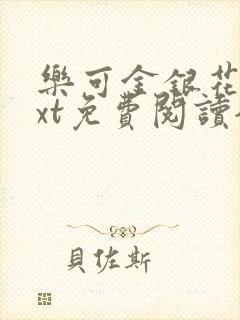 樂可金銀花
xt免費閱讀
貝佐斯